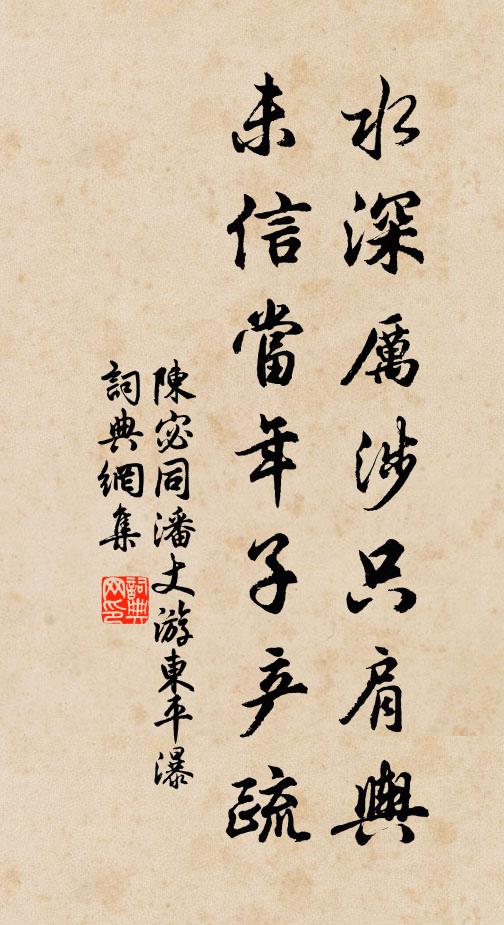 水深厲涉只肩輿
未信當年子产疏
陳宓同潘丈游東平瀑
詞典網集
詞典网印